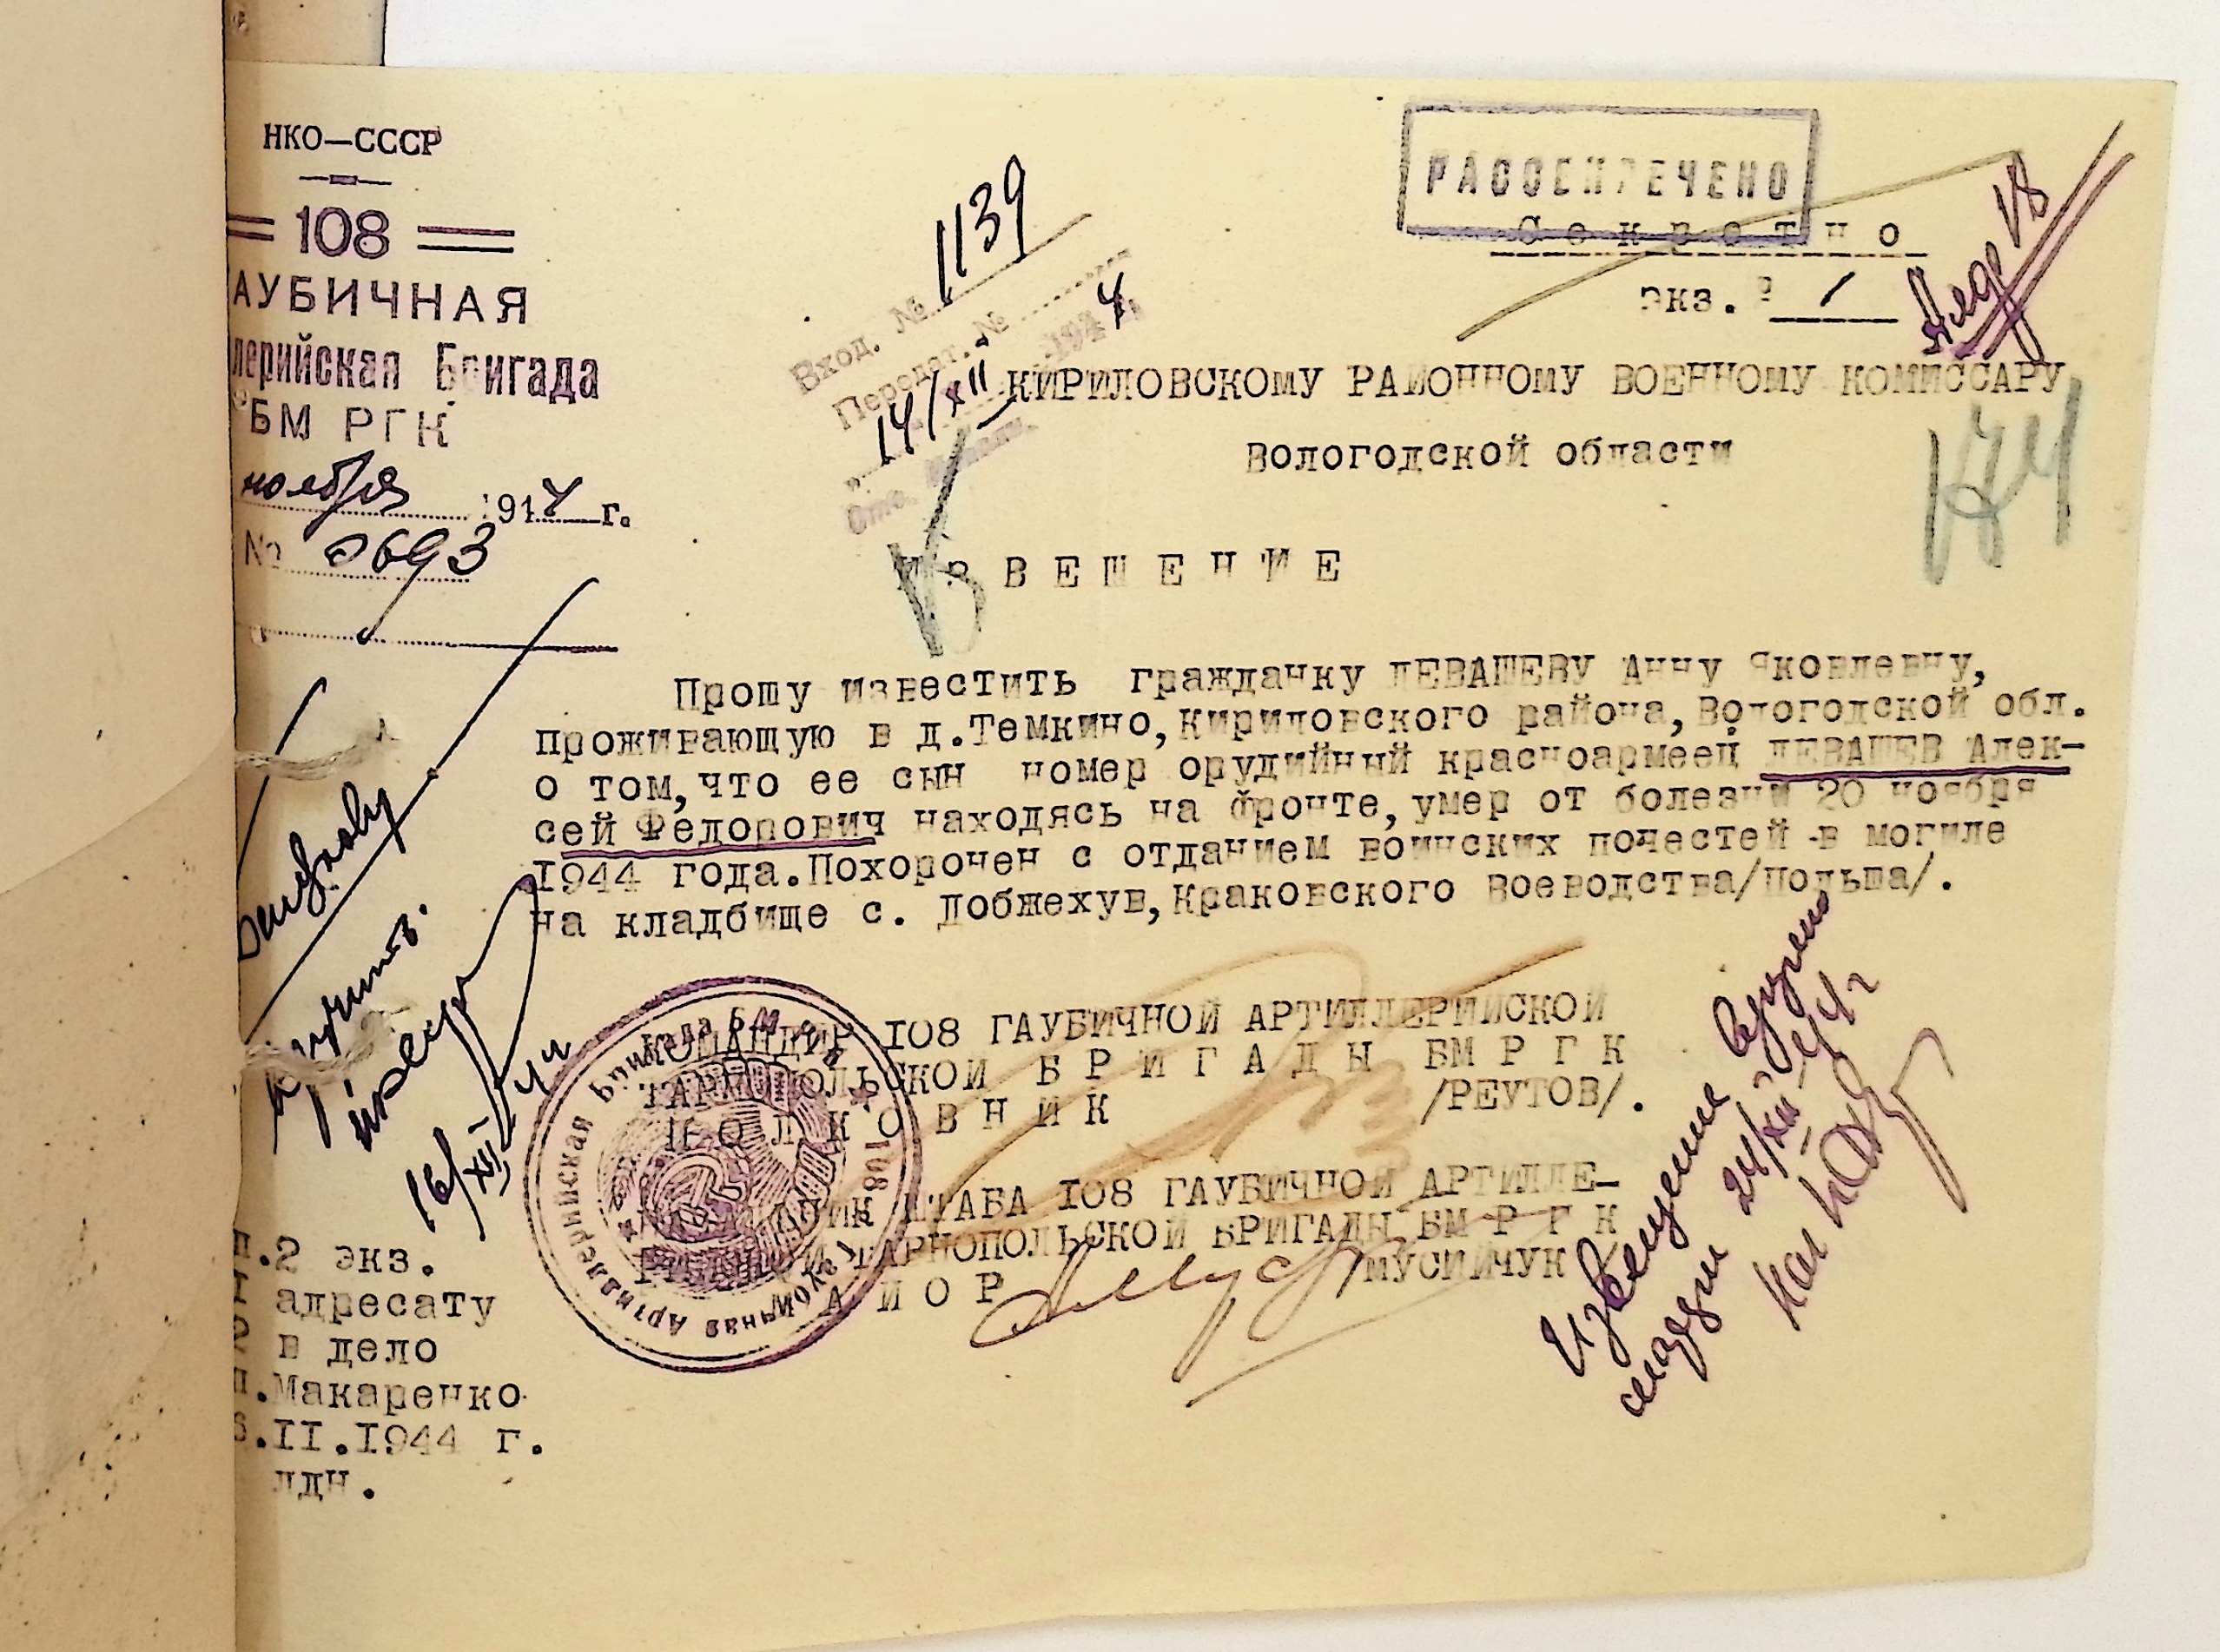 НКО—СССР
108
АУБИЧНАЯ
лерийская Бригада
БМ РГК
ноября 1944 г.
№ 0693
Вход. № 1139
Передат. №
14/XII 1944
РАССЕКРЕЧЕНО
Секретно
экз. 1
КИРИЛОВСКОМУ РАЙОННОМУ ВОЕННОМУ КОМИССАРУ
Вологодской области
ИЗВЕШЕНИЕ
Прошу известить гражданку ЛЕВАШЕВУ Анну Яковлевну,
проживающую в д.Темкино,Кириловского района,Вологодской обл.
о том,что ее сын номер орудийний красноармеец ЛЕВАШЕВ Алек-
сей Федорович находясь на фронте,умер от болезни 20 ноября
1944 года.Похоронен с отданием воинских почестей в могиле
на кладбище с. Добжехув,Краковского воеводства/Польша/.
КОМАНДИР 108 ГАУБИЧНОЙ АРТИЛЛЕРИЙСКОЙ
ТАРНОПОЛЬСКОЙ БРИГАДЫ БМ РГК
ПОЛКОВНИК /РЕУТОВ/.
НАЧАЛЬНИК ШТАБА 108 ГАУБИЧНОЙ АРТИЛЛЕ-
РИЙСКОЙ ТАРНОПОЛЬСКОЙ БРИГАДЫ БМ РГК
МАЙОР МУСИЙЧУК
Гаубичная Артиллерийская Бригада БМ РГК 108
вручить.
16/XII 44
Извещение вручено
24/XII-44г
.2 экз.
адресату
в дело
.Макаренко
.II.1944 г.
лдн.